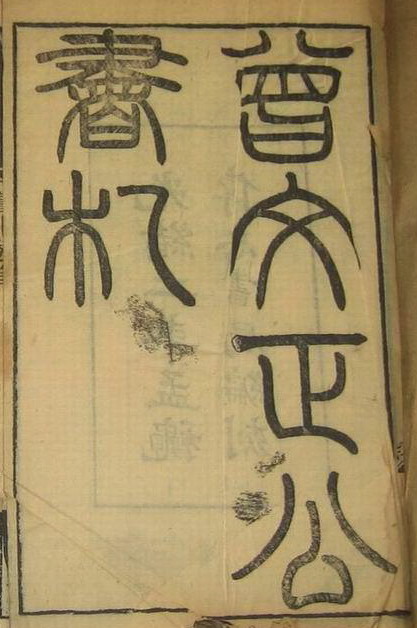 曾文正公
書札